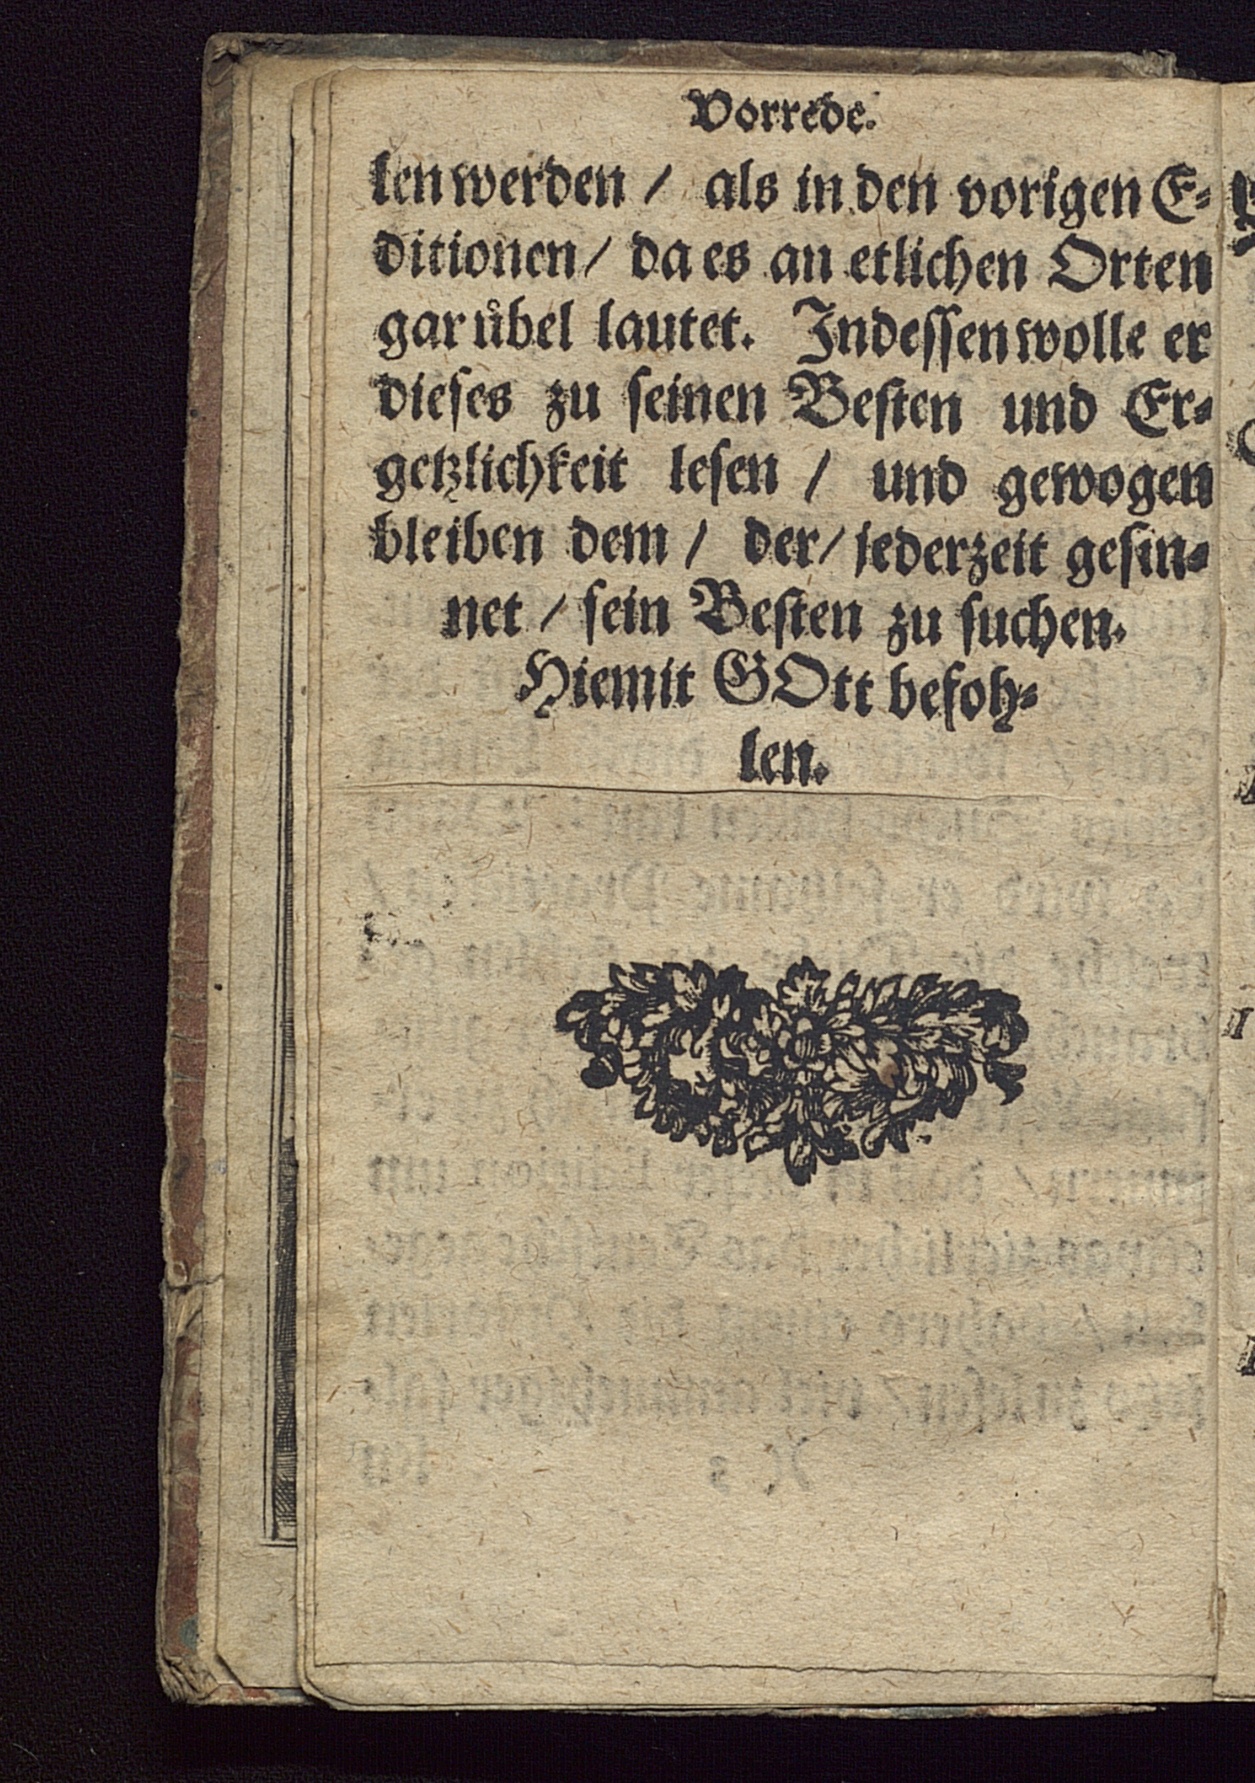 Vorrede.
len werden / als in den vorigen E-
ditionen / da es an etlichen Orten
gar uͤbel lautet. Indessen wolle er
dieses zu seinen Besten und Er-
getzlichkeit lesen / und gewogen
bleiben dem / der / jederzeit gesin-
net / sein Besten zu suchen.
Hiemit GOtt befoh-
len.